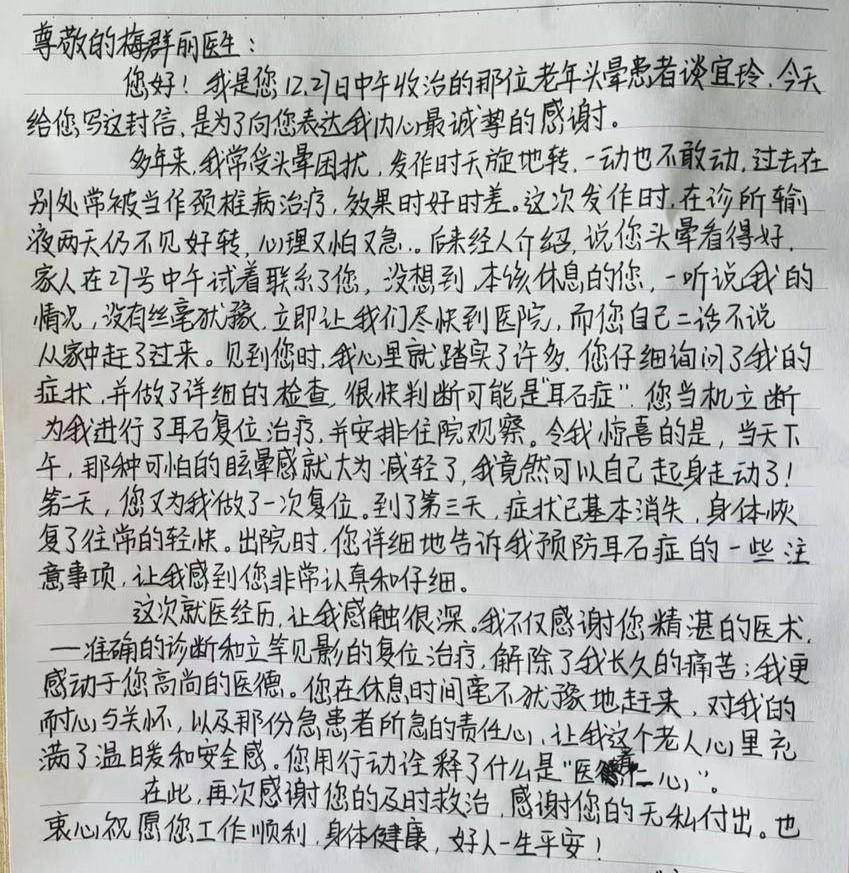 尊敬的梅群丽医生：
您好！我是您12.27日中午收治的那位老年头晕患者谈宜玲，今天
给您写这封信，是为了向您表达我内心最诚挚的感谢。
多年来，我常受头晕困扰，发作时天旋地转，一动也不敢动，过去在
别处常被当作颈椎病治疗，效果时好时差。这次发作时，在诊所输
液两天仍不见好转，心理又怕又急.。后来经人介绍，说您头晕看得好，
家人在27号中午试着联系了您，没想到，本该休息的您，一听说我的
情况，没有丝毫犹豫，立即让我们尽快到医院，而您自己二话不说
从家中赶了过来。见到您时，我心里就踏实了许多，您仔细询问了我的
症状，并做了详细的检查，很快判断可能是"耳石症"，您当机立断
为我进行了耳石复位治疗，并安排住院观察。令我惊喜的是，当天下
午，那种可怕的眩晕感就大为减轻了，我竟然可以自己起身走动了！
第二天，您又为我做了一次复位。到了第三天，症状已基本消失，身体恢
复了往常的轻快。出院时，您详细地告诉我预防耳石症的一些注
意事项，让我感到您非常认真和仔细。
这次就医经历，让我感触很深。我不仅感谢您精湛的医术，
一准确的诊断和立竿见影的复位治疗，解除了我长久的痛苦；我更
感动于您高尚的医德。您在休息时间毫不犹豫地赶来，对我的
耐心与关怀，以及那份急患者所急的责任心，让我这个老人心里充
满了温暖和安全感。您用行动诠释了什么是"医者仁心"。
在此，再次感谢您的及时救治，感谢您的无私付出。也
衷心祝愿您工作顺利，身体健康，好人一生平安！